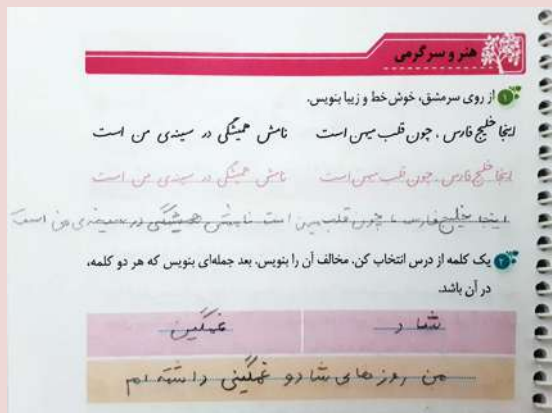 هنر و سرگرمی
۱ از روی سرمشق، خوش خط و زیبا بنویس.
اینجا خلیج فارس، چون قلب میهن است نامش همیشگی در سینه‌ی من است
اینجا خلیج فارس، چون قلب میهن است نامش همیشگی در سینه‌ی من است
اینجا خلیج فارس، چون قلب میهن است نامش همیشگی در سینه‌ی من است
۲ یک کلمه از درس انتخاب کن. مخالف آن را بنویس. بعد جمله‌ای بنویس که هر دو کلمه،
در آن باشد.
شاد غمگین
من روزهای شاد و غمگینی داشته ام